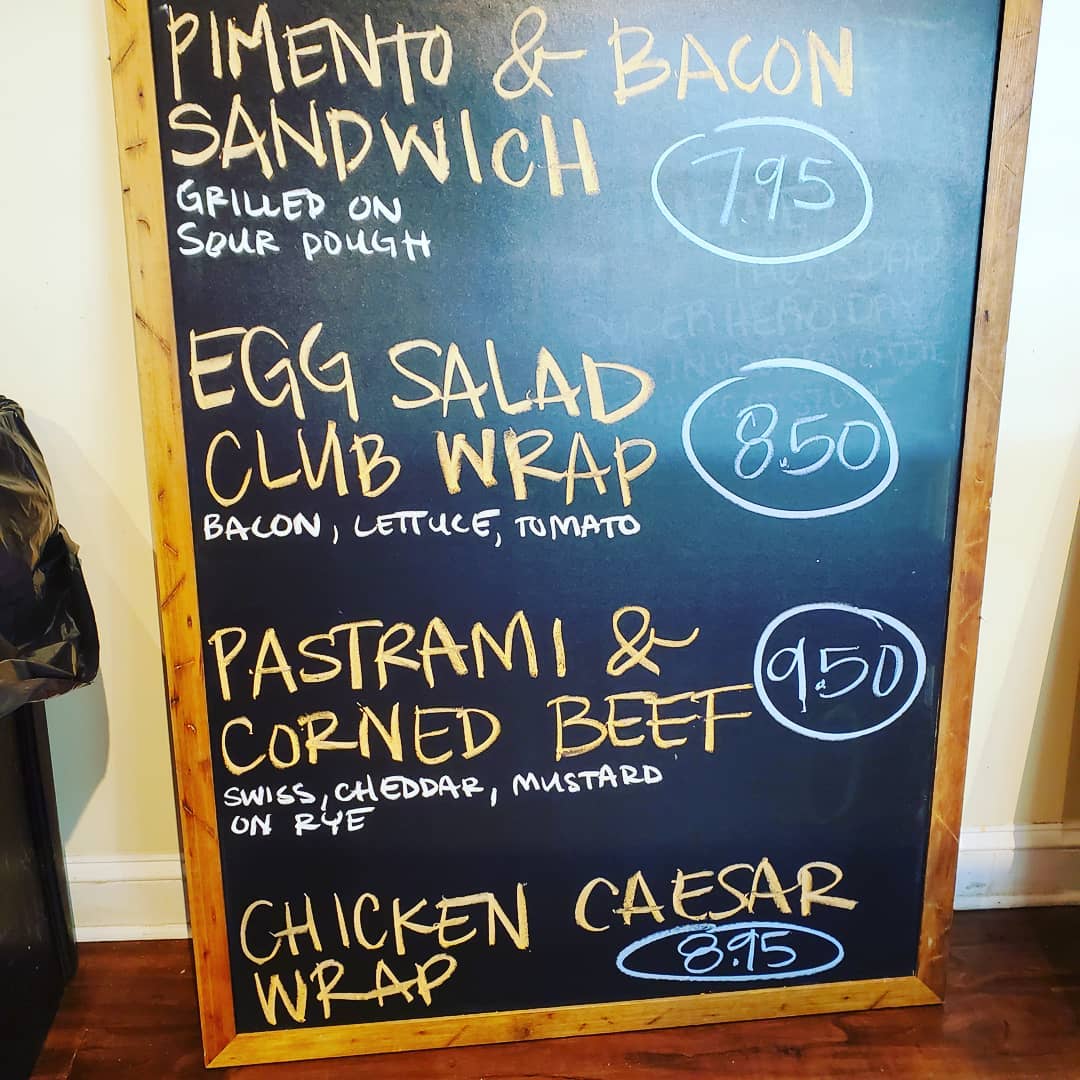 PIMENTO & BACON
SANDWICH
7.95
GRILLED ON
SOUR DOUGH
EGG SALAD
CLUB WRAP
8.50
BACON, LETTUCE, TOMATO
PASTRAMI &
CORNED BEEF
9.50
SWISS, CHEDDAR, MUSTARD
ON RYE
CHICKEN CAESAR
WRAP
8.95